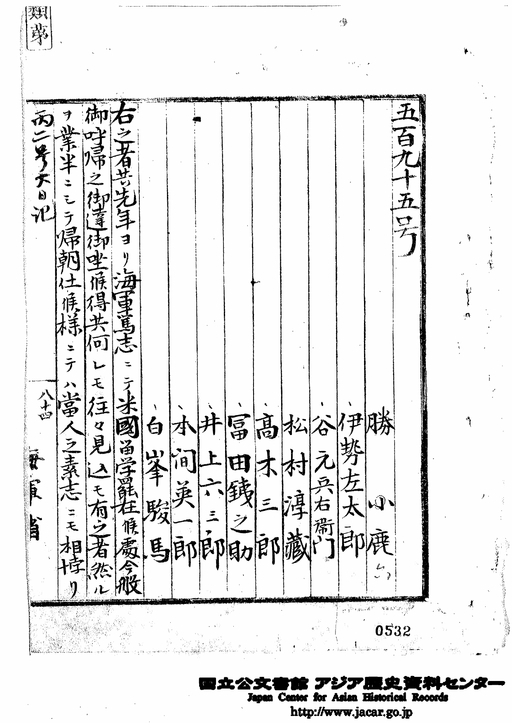 類第
五百九十五号
勝小鹿
伊勢左太郎
谷元兵右衛門
松村淳蔵
髙木三郎
冨田鉄之助
井上六三郎
本间英一郎
白峯駿馬
右之者共先年ヨリ海軍篤志ニテ米國留学罷在候處今般
御呼帰之御達御座候得共何レモ往々見込モ有之者然ル
ヲ業半ニシテ帰朝仕候様ニテハ當人之素志ニモ相悖リ
丙二号大日記
八十四
海軍省
0532
国立公文書館 アジア歴史資料センター
Japan Center for Asian Historical Records
http://www.jacar.go.jp